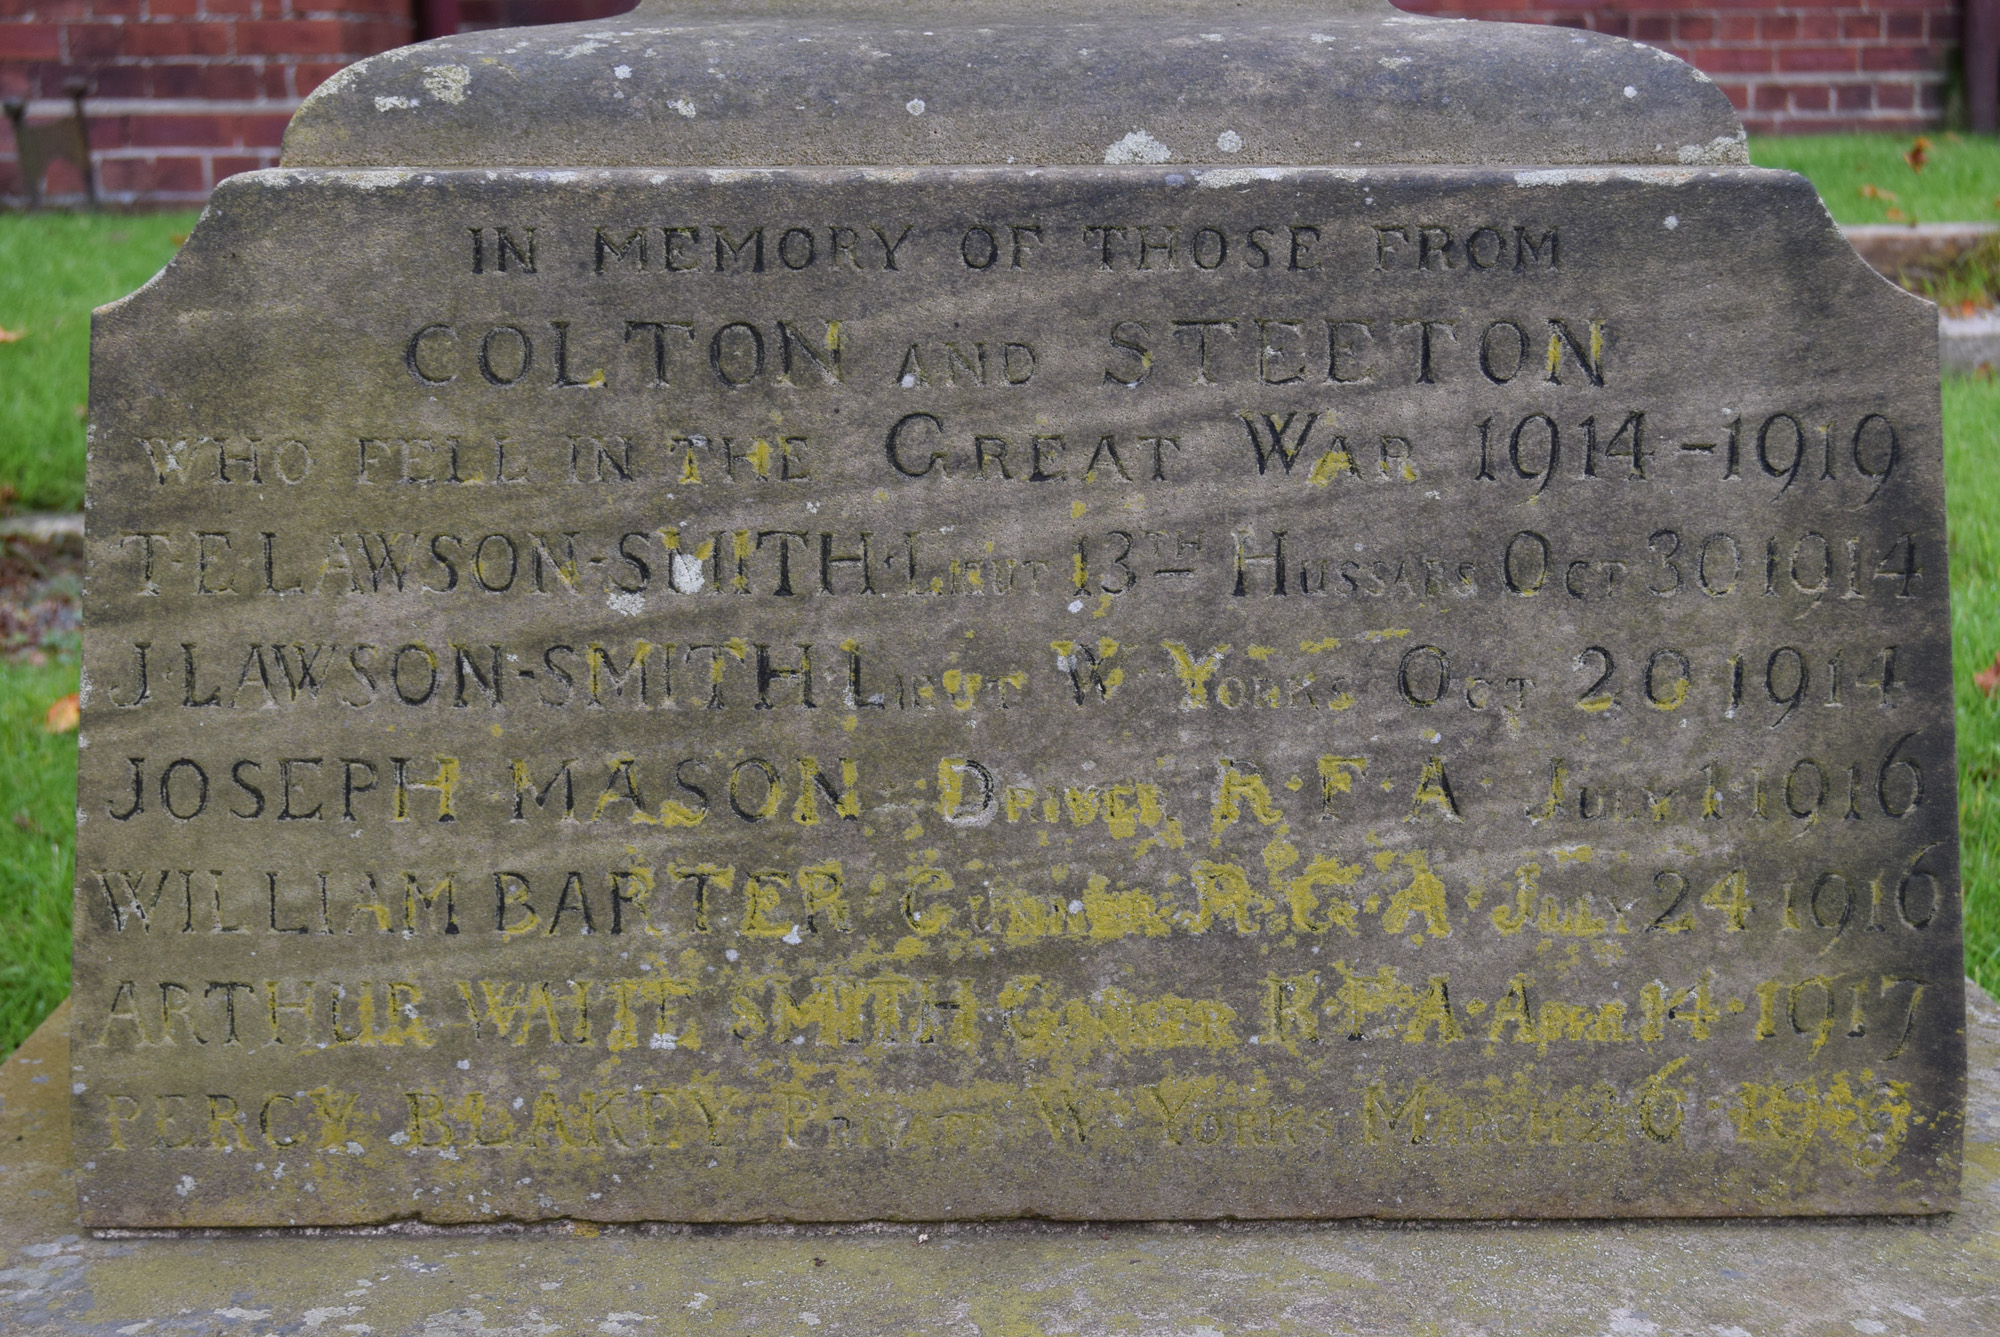 IN MEMORY OF THOSE FROM
COLTON AND STEETON
WHO FELL IN THE GREAT WAR 1914-1919
T·E·LAWSON-SMITH·LIEUT 13TH HUSSARS OCT 30 1914
J·LAWSON-SMITH LIEUT W YORKS OCT 20 1914
JOSEPH MASON DRIVER R·F·A JULY 1 1916
WILLIAM BARTER GUNNER R·G·A·JULY 24 1916
ARTHUR WAITE SMITH GUNNER R·F·A·APRIL 14·1917
PERCY BLAKEY PRIVATE W·YORKS MARCH 26